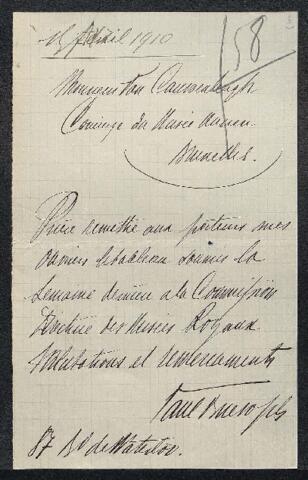 15 Avril 1910
58
Monsieur Van Cauwenbergh
Concierge du Musée Ancien
Bruxelles.
Prière remettre aux porteurs mes
ouvriers le tableau soumis la
semaine dernière a la Commission
Directrice des Musées Royaux
Salutations et remerciements
Paul Buéso fils
87 Bd de Waterloo.